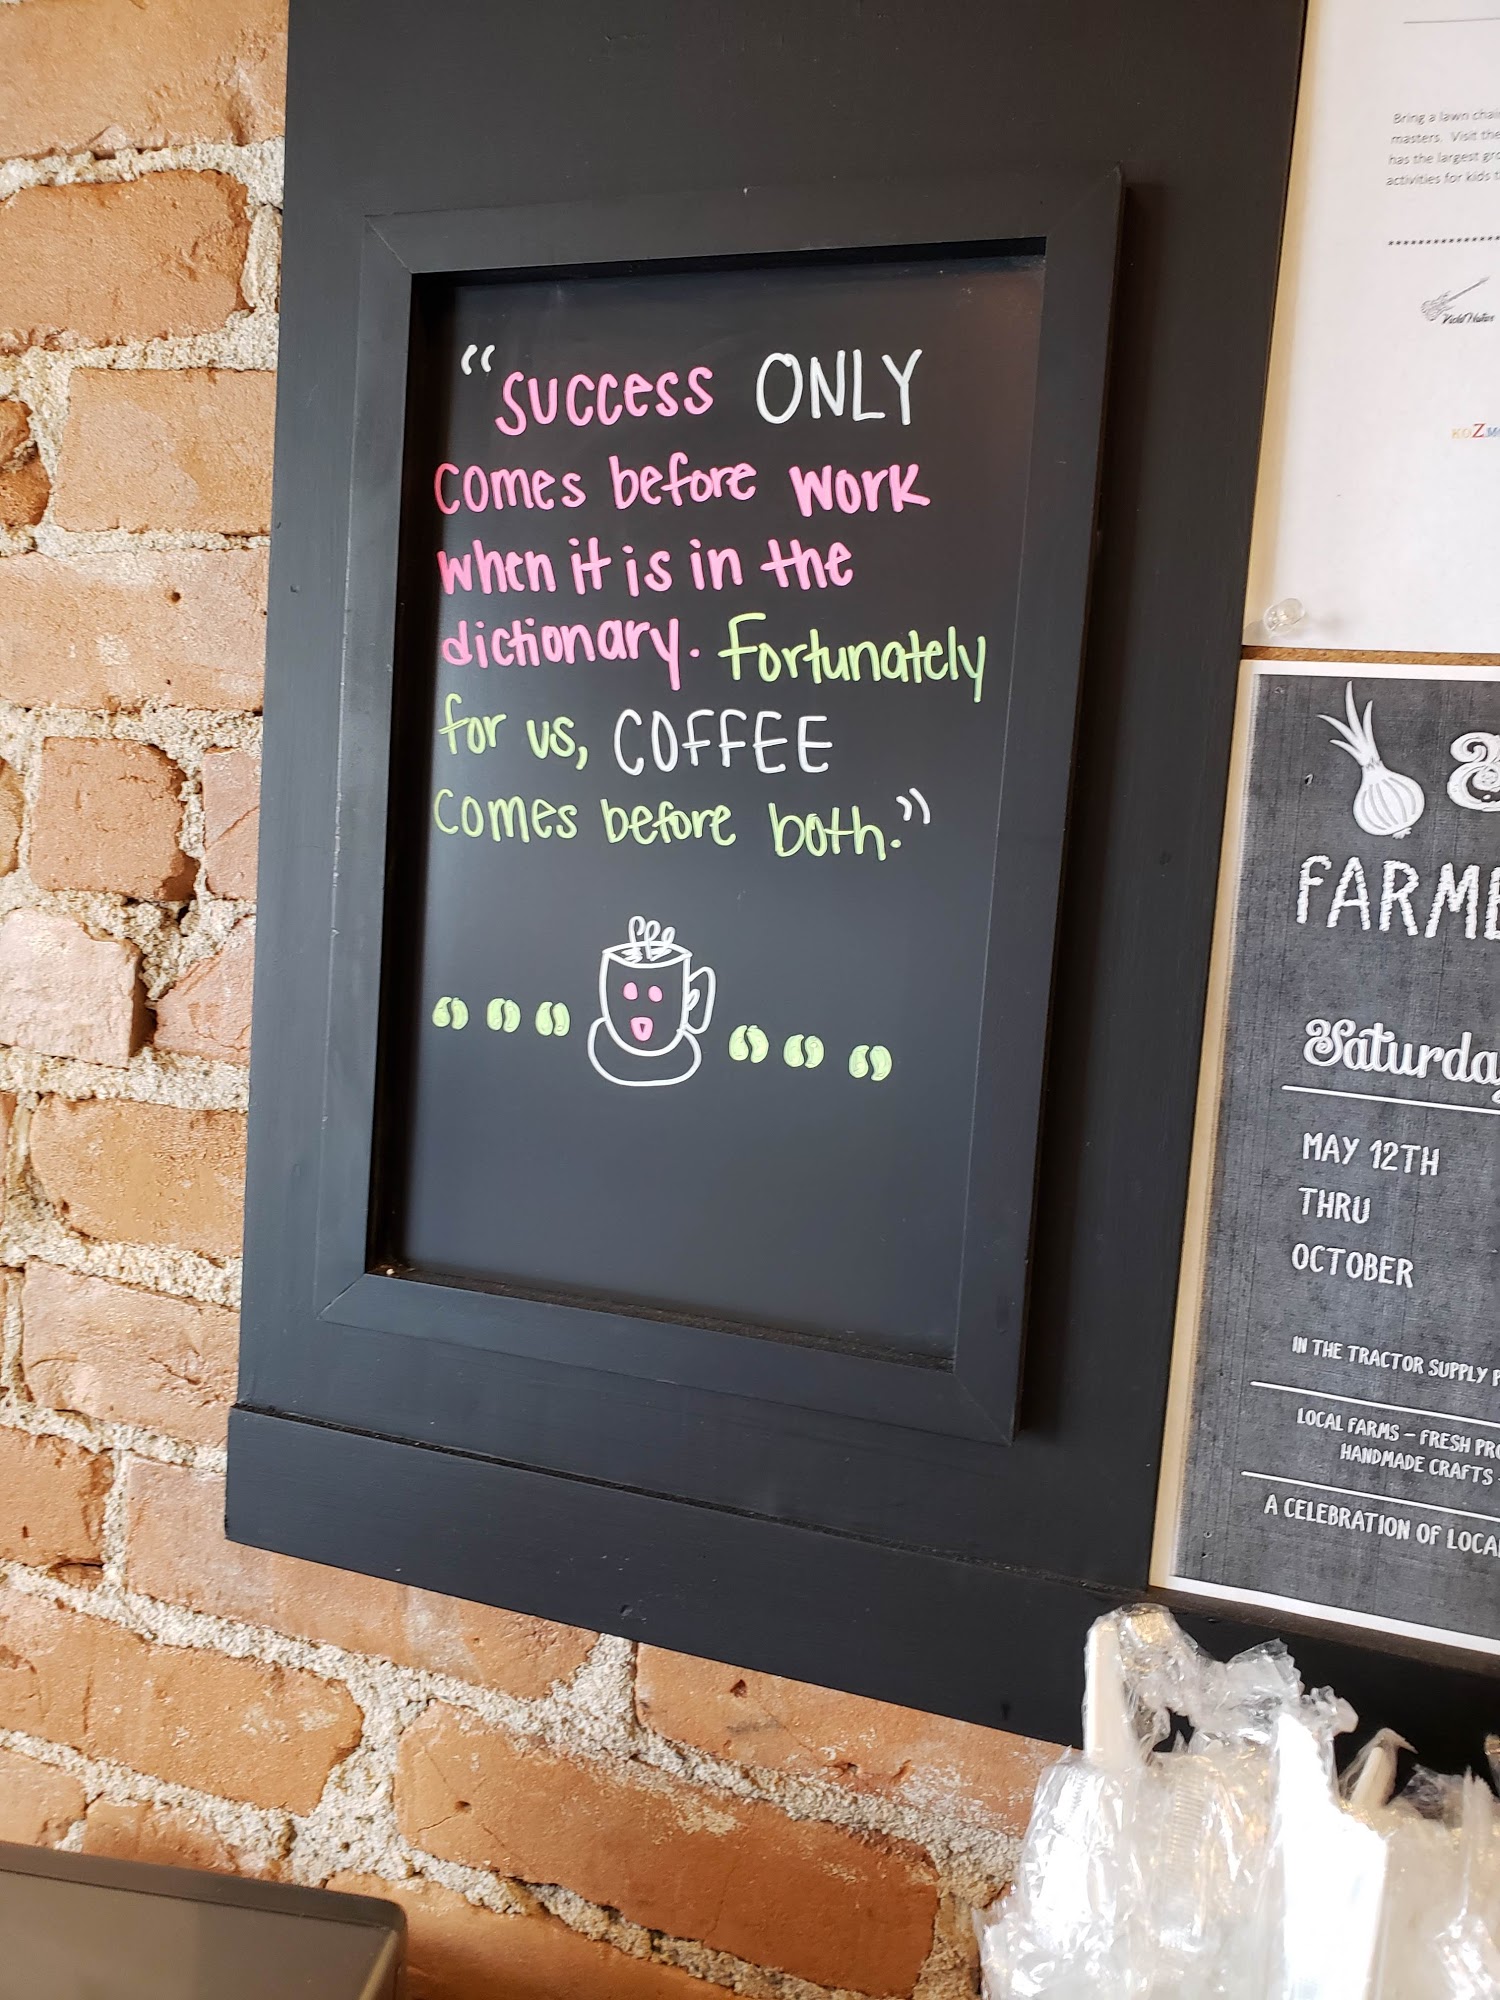 “Success ONLY
comes before work
when it is in the
dictionary. Fortunately
for us, COFFEE
comes before both.”
Bring a lawn chair
masters. Visit the
has the largest
activities for kids
FARME
Saturday
MAY 12TH
THRU
OCTOBER
IN THE TRACTOR SUPPLY P
LOCAL FARMS – FRESH PRO
HANDMADE CRAFTS
A CELEBRATION OF LOCAL